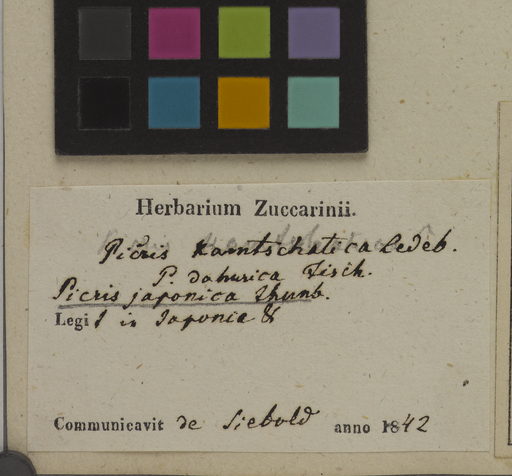 Herbarium Zuccarinii.
Picris Kamtschatica Ledeb.
P. dahurica Fisch.
Picris japonica Thunb.
Legit in Japonia
Communicavit de Siebold anno 1842